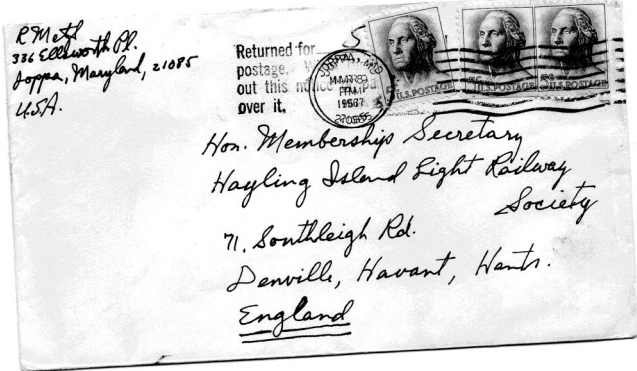 R Meth
336 Ellsworth Pl.
Joppa, Maryland, 21085
U.S.A.
Returned for
postage.
out this notice
over it.
JOPPA, MD
PM
1967
U.S. POSTAGE
U.S. POSTAGE
U.S. POSTAGE
Hon. Membership Secretary
Hayling Island Light Railway
Society
71, Southleigh Rd.
Denville, Havant, Hants.
England